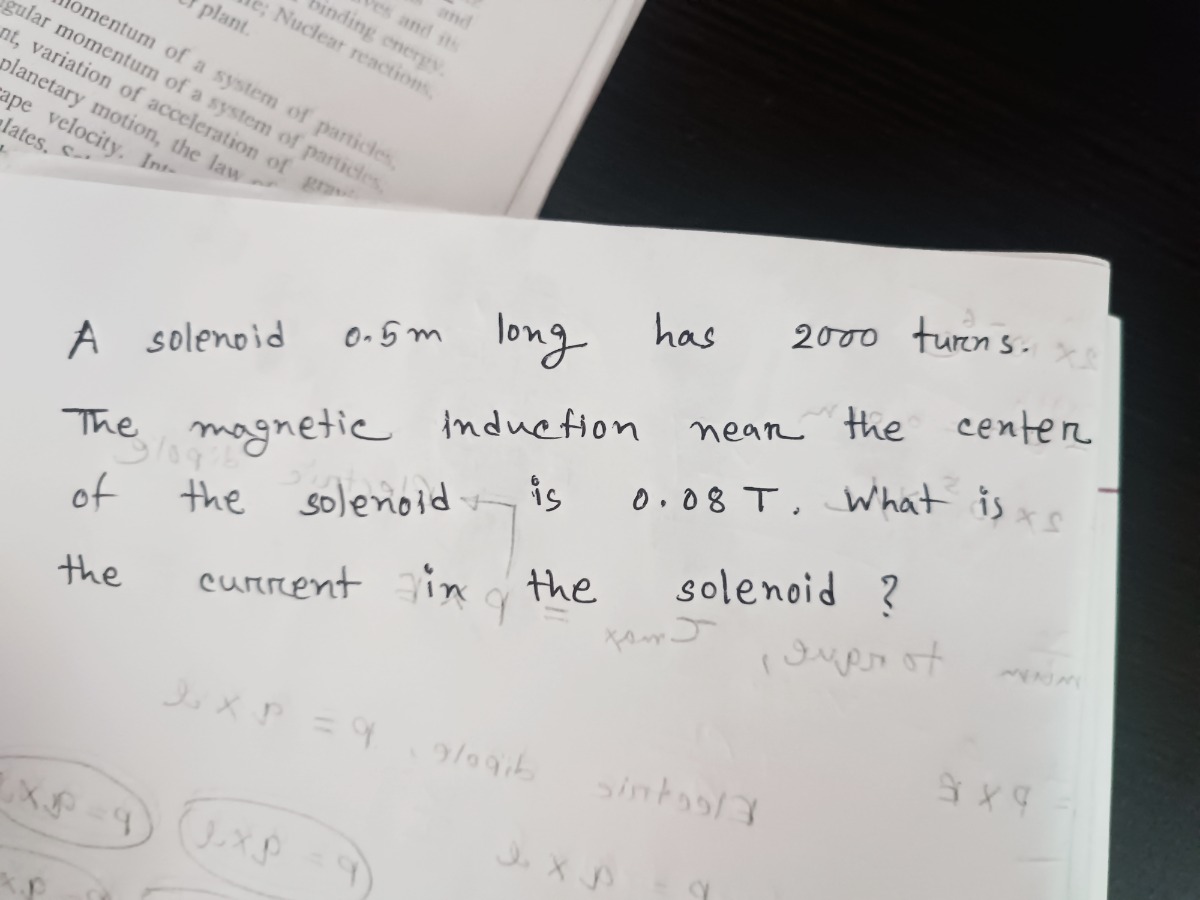 and
ves and its
binding energy.
Nuclear reactions,
plant.
momentum of a system of particles,
gular momentum of a system of particles,
variation of acceleration of
planetary motion, the law of
velocity.
A solenoid 0.5m long has 2000 turns.
The magnetic induction near the center
of the solenoid is 0.08 T. What is
the current in the solenoid ?